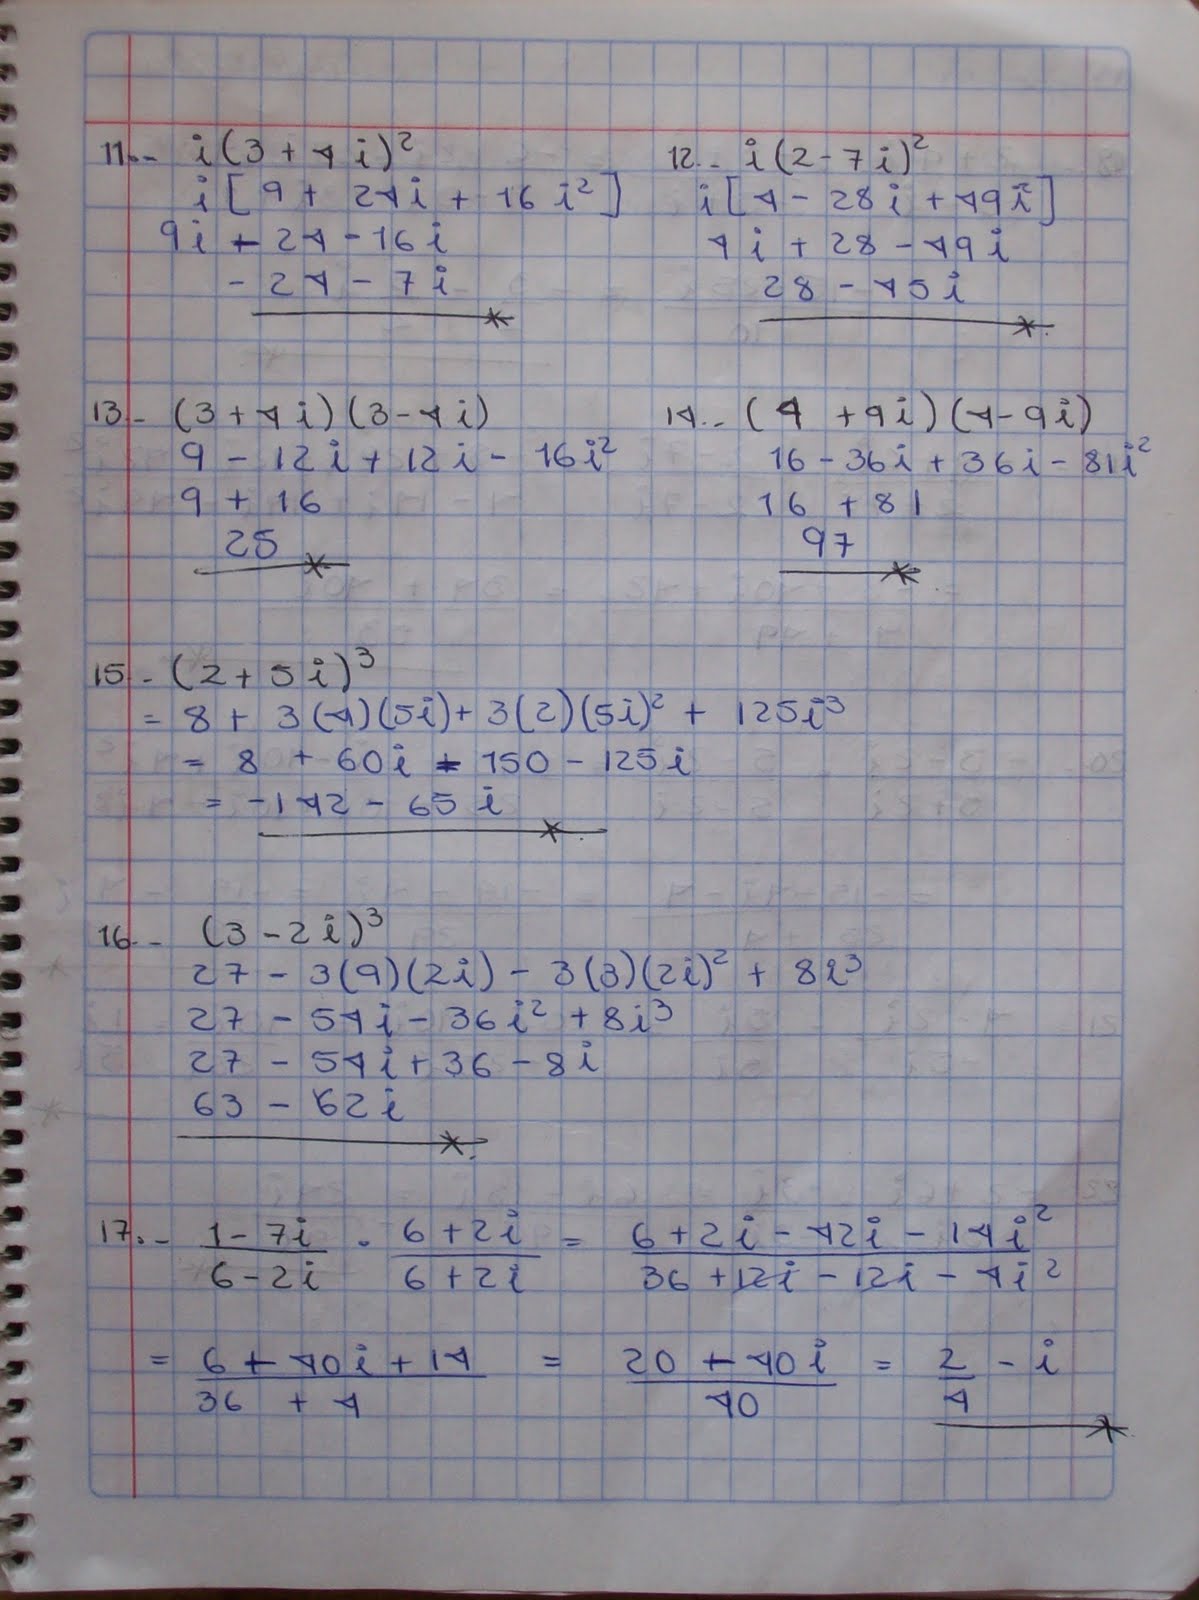 11.- i(3+4i)²
i[9+24i+16i²]
9i-24-16i
-24-7i
12.- i(2-7i)²
i[4-28i+49i²]
4i+28-49i
28-45i
13.- (3+4i)(3-4i)
9-12i+12i-16i²
9+16
25
14.- (4+9i)(4-9i)
16-36i+36i-81i²
16+81
97
15.- (2+5i)³
= 8+3(4)(5i)+3(2)(5i)²+125i³
= 8+60i-150-125i
= -142-65i
16.- (3-2i)³
27-3(9)(2i)-3(3)(2i)²+8i³
27-54i-36i²+8i³
27-54i+36-8i
63-62i
17.- 1-7i/6-2i · 6+2i/6+2i = 6+2i-42i-14i²/36+12i-12i-4i²
= 6-40i+14/36+4 = 20-40i/40 = 2/4 - i